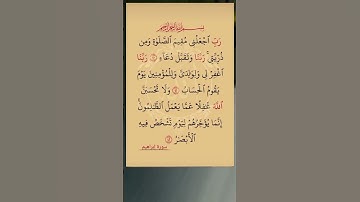 بسم الله الرحمن الرحيم
رَبِّ ٱجۡعَلۡنِي مُقِيمَ ٱلصَّلَوٰةِ وَمِن
ذُرِّيَّتِيۚ رَبَّنَا وَتَقَبَّلۡ دُعَآءِ ۝ رَبَّنَا
ٱغۡفِرۡ لِي وَلِوَٰلِدَيَّ وَلِلۡمُؤۡمِنِينَ يَوۡمَ
يَقُومُ ٱلۡحِسَابُ ۝ وَلَا تَحۡسَبَنَّ
ٱللَّهَ غَٰفِلًا عَمَّا يَعۡمَلُ ٱلظَّٰلِمُونَۚ
إِنَّمَا يُؤَخِّرُهُمۡ لِيَوۡمٖ تَشۡخَصُ فِيهِ
ٱلۡأَبۡصَٰرُ ۝
سورة ابراهيم